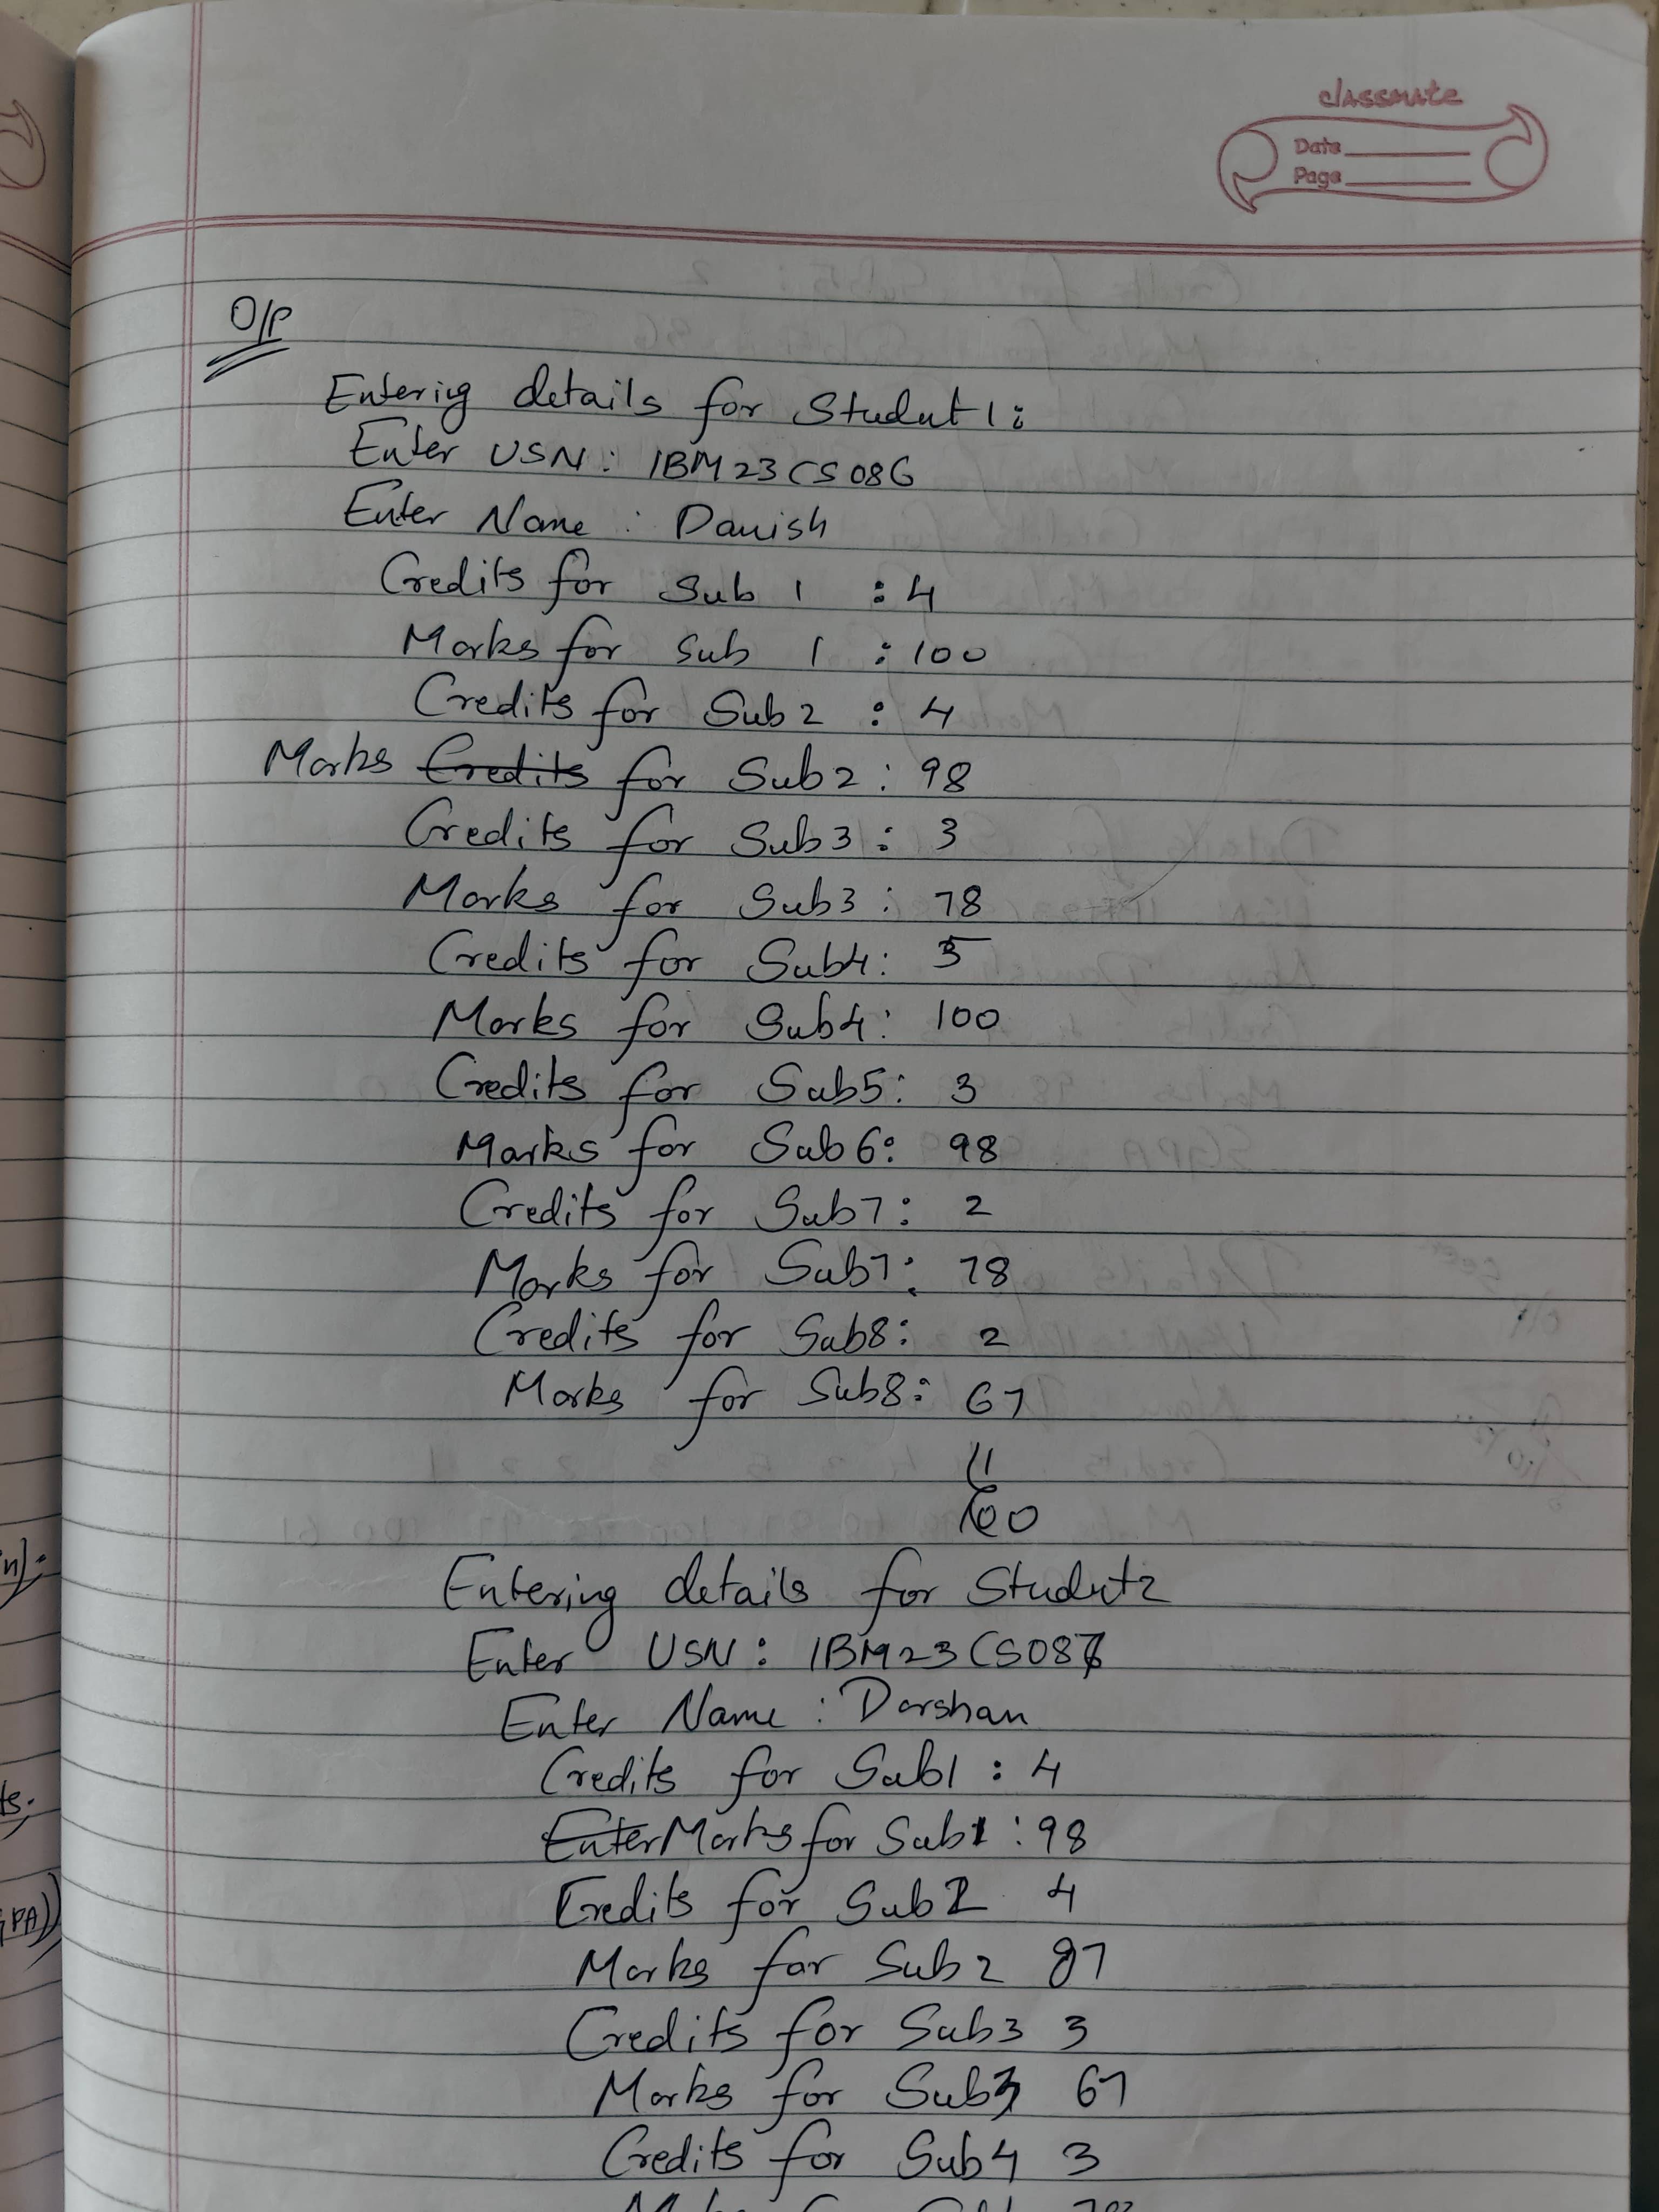 classmate
Date
Page
O/P
Entering details for Student 1:
Enter USN: 1BM23CS086
Enter Name : Danish
Credits for Sub 1 : 4
Marks for Sub 1 : 100
Credits for Sub2 : 4
Marks Credits for Sub2: 98
Credits for Sub3: 3
Marks for Sub3: 78
Credits for Sub4:
Marks for Sub4: 100
Credits for Sub5: 3
Marks for Sub6: 98
Credits for Sub7: 2
Marks for Sub7: 78
Credits for Sub8: 2
Marks for Sub8: 67
Entering details for Student2
Enter USN: 1BM23CS087
Enter Name : Darshan
Credits for Sub1 : 4
Enter Marks for Sub1 : 98
Credits for Sub2 4
Marks for Sub2 87
Credits for Sub3 3
Marks for Sub3 67
Credits for Sub4 3